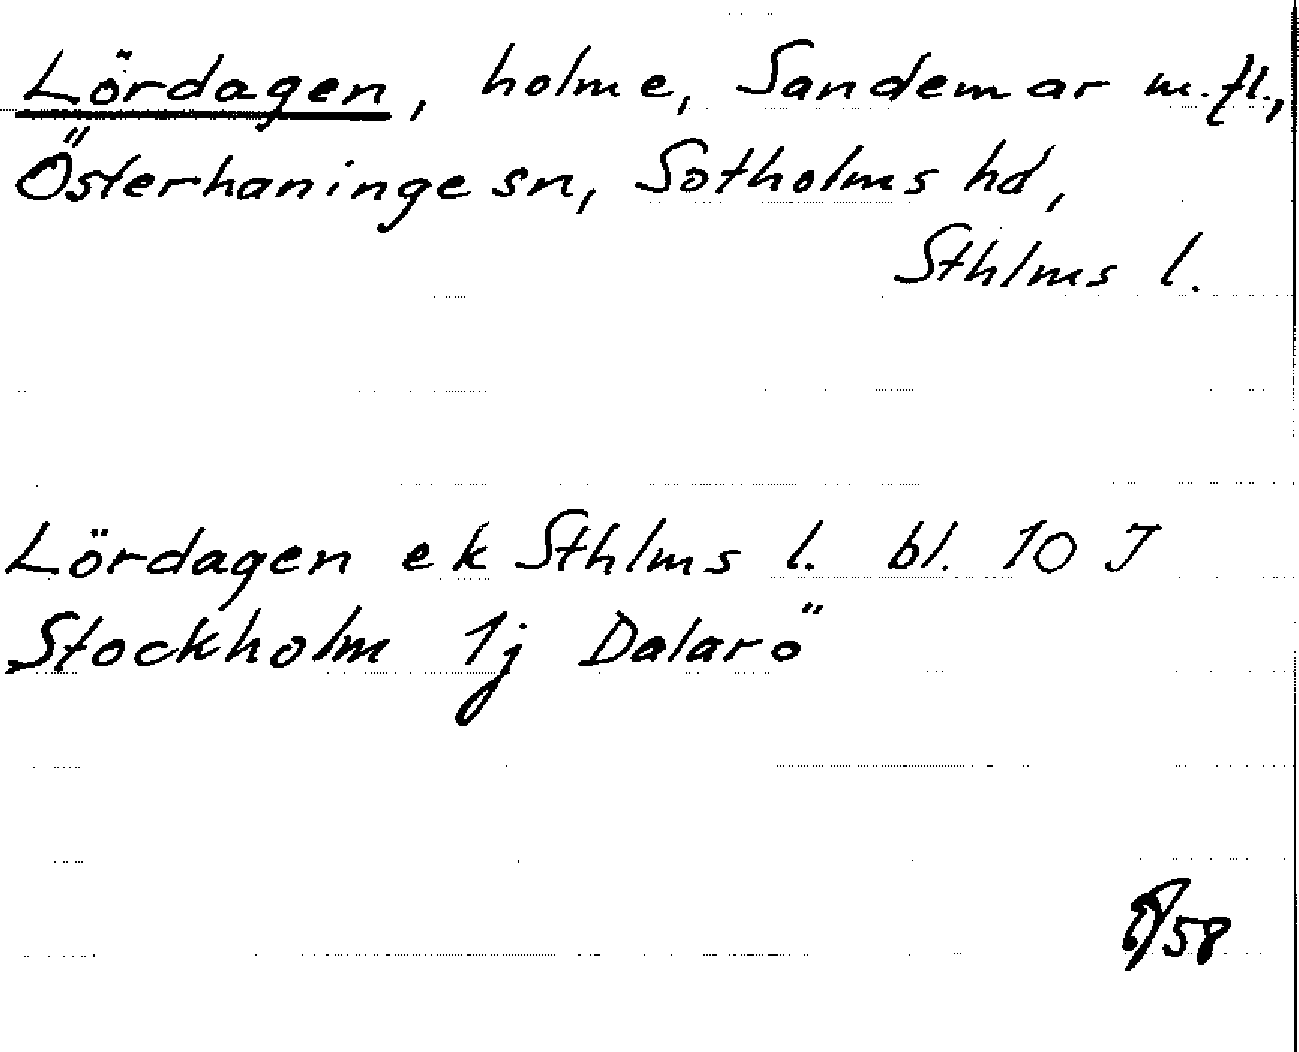 Lördagen, holme, Sandemar m.fl.,
Österhaninge sn, Sotholms hd,
Sthlms l.
Lördagen ek Sthlms l. bl. 10 J
Stockholm 1j Dalarö
58